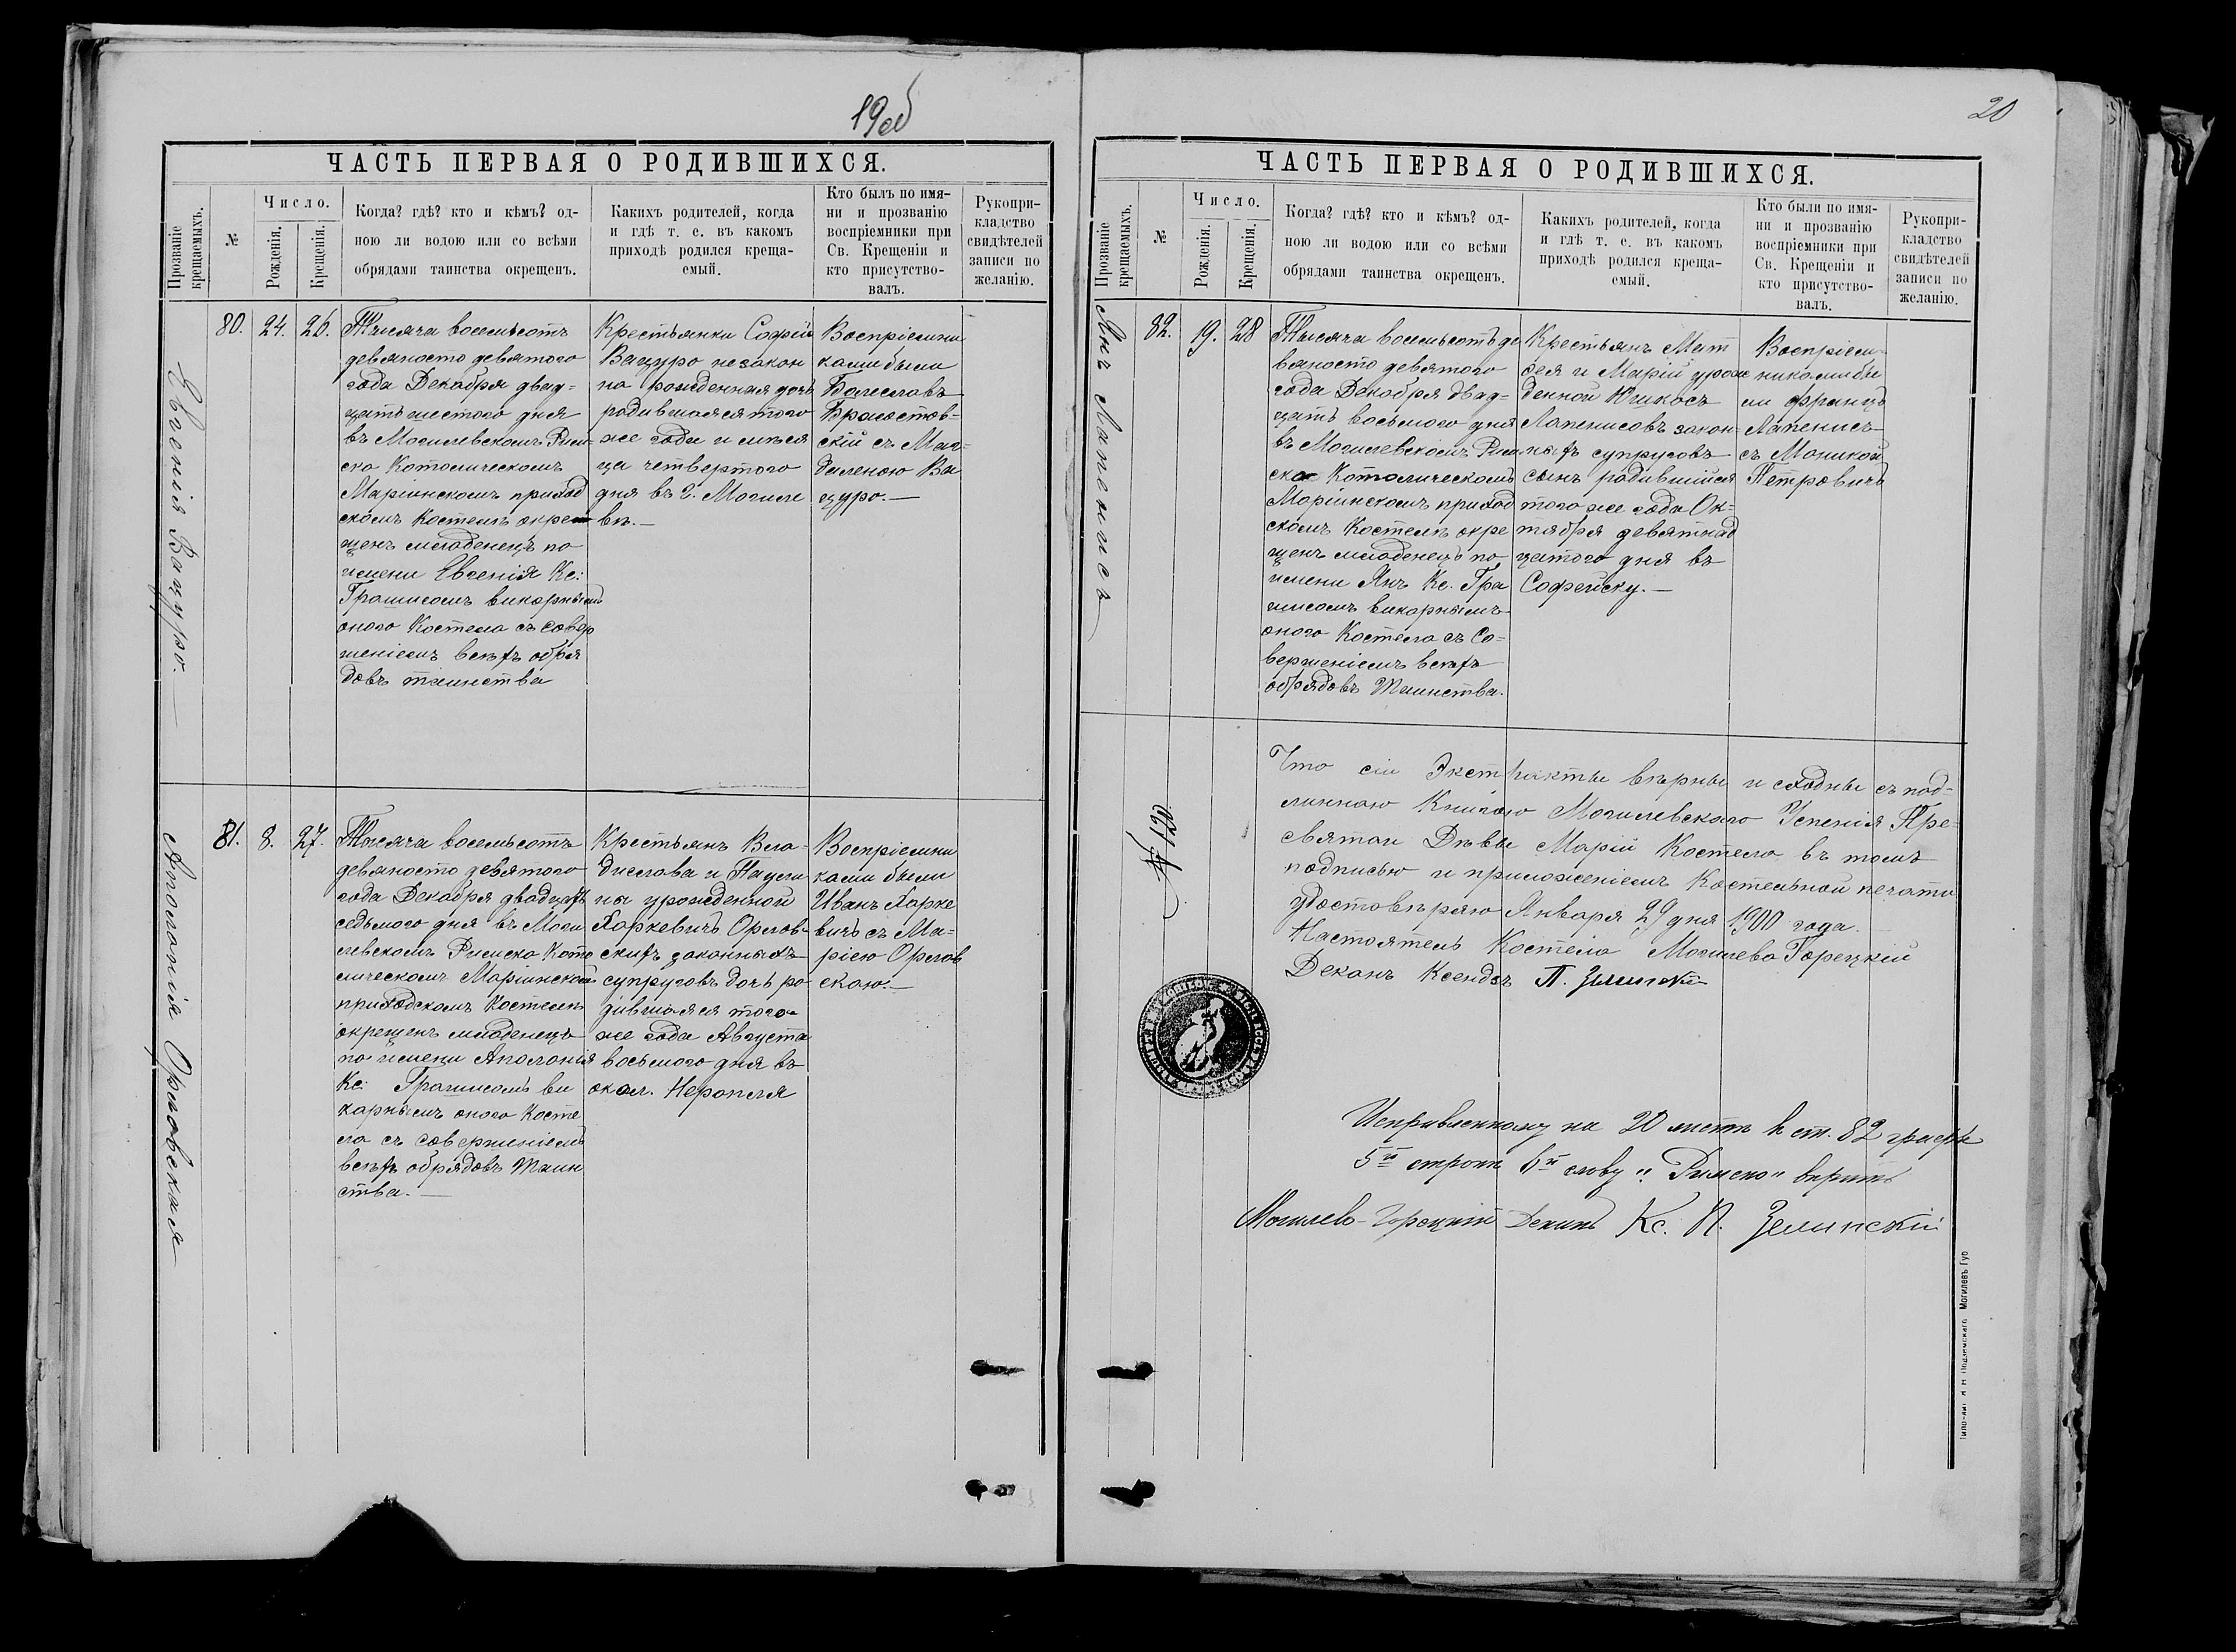 19об
ЧАСТЬ ПЕРВАЯ О РОДИВШИХСЯ.
Прозваніе крещаемыхъ.
№
Число.
Рожденія.
Крещенія.
Когда? гдѣ? кто и кѣмъ? од-
ною ли водою или со всѣми
обрядами таинства окрещенъ.
Какихъ родителей, когда
и гдѣ т. е. въ какомъ
приходѣ родился креща-
емый.
Кто былъ по имя-
ни и прозванію
воспріемники при
Св. Крещеніи и
кто присутство-
валъ.
Рукопри-
кладство
свидѣтелей
записи по
желанію.
Евгенія Вацуро.—
80.
24.
26.
Тысяча восемьсотъ
девяносто девятого
года Декабря двад-
цать шестого дня
въ Могилевскомъ Рим-
ско Католическомъ
Маріинскомъ приход
скомъ Костелѣ окре
щенъ младенецъ по
имени Евгенія Кс:
Грамисомъ викарнымъ
оного Костела съ совер
шеніемъ всѣхъ обря
довъ таинства
Крестьянки Софіи
Вацуро незакон
но рожденная дочь
родившаяся того
же года и мѣся
ца четвертого
дня въ г. Могиле
вѣ.—
Воспріемни
ками были
Балеславъ
Браостов-
скій съ Маг-
даленою Ва
цуро.—
Аполонія Орловская
81.
8.
27.
Тысяча восемьсотъ
девяносто девятого
года Декабря двадцать
седьмого дня въ Моги
левскомъ Римско Като
лическомъ Маріинскомъ
приходскомъ Костелѣ
окрещенъ младенецъ
по имени Аполонія
Кс: Грамисомъ ви
карнымъ оного Косте
ла съ совершеніемъ
всѣхъ обрядовъ Таин
ства.—
Крестьянъ Вла-
дислава и Паули
на урожденной
Харкевичъ Орлов-
скихъ законныхъ
супруговъ дочь ро-
дившаяся того
же года Августа
восьмого дня въ
окол. Нерополя
Воспріемни
ками были
Иванъ Харке
вичъ съ Ма-
ріею Орлов
скою.—
20
ЧАСТЬ ПЕРВАЯ О РОДИВШИХСЯ.
Прозваніе крещаемыхъ.
№
Число.
Рожденія.
Крещенія.
Когда? гдѣ? кто и кѣмъ? од-
ною ли водою или со всѣми
обрядами таинства окрещенъ.
Какихъ родителей, когда
и гдѣ т. е. въ какомъ
приходѣ родился креща-
емый.
Кто были по имя-
ни и прозванію
воспріемники при
Св. Крещеніи и
кто присутство-
валъ.
Рукопри-
кладство
свидѣтелей
записи по
желанію.
Янъ Лапенисъ
82.
19.
28
Тысяча восемьсотъ де
вяносто девятого
года Декабря двад-
цать восьмого дня
въ Могилевскомъ Рим
ско Католическомъ
Маріинскомъ приход
скомъ Костелѣ окре
щенъ младенецъ по
имени Янъ Кс. Гра
мисомъ викарнымъ
оного Костела съ Со-
вершеніемъ всѣхъ
обрядовъ Таинства.
Крестьянъ Мат
сея и Маріи урож
денной Юшкосъ
Лапенисовъ закон-
ныхъ супруговъ
сынъ родившійся
того же года Ок-
тября девятнад
цатого дня въ
Софейску.—
Воспріем-
никами бы
ли Францъ
Лапенисъ
съ Моникой
Петровичъ
№ 120.
Что сіи Экстракты вѣрны и сходны съ под-
линною Книгою Могилевского Успенія Пре-
святои Дѣвы Маріи Костела въ томъ
подписью и приложеніемъ Костельной печати
удостовѣряю Января 29 дня 1900 года.
Настоятель Костела Могилево Горецкій
Деканъ Ксендзъ П. Зелинскій
Исправленному на 20 листѣ к ст. 82 графѣ
5й строкѣ 6й слову "Римско" вѣрить
Могилево-Горецкій Деканъ Кс. П. Зелинскій
Могилевъ Губ